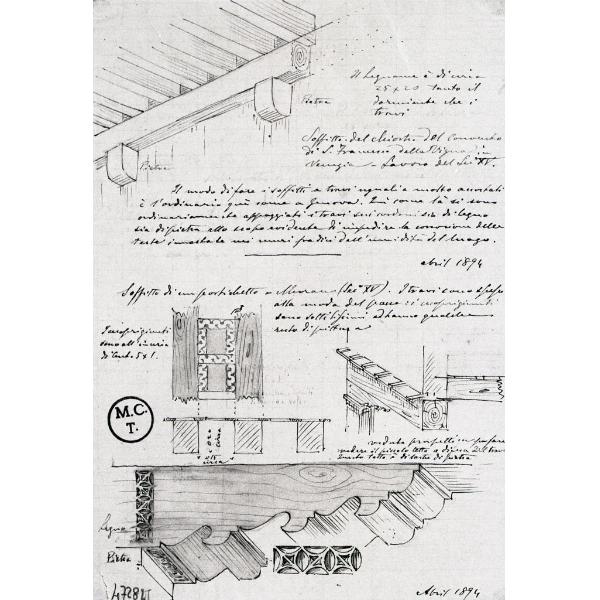 Il legname è di circa
25 x 20 tanto il
dormiente che i
travi
Pietra
Pietra
Soffitto del chiostro del Convento
di S. Francesco della Vigna in
Venezia - Lavoro del Sec. XV.
Il modo di fare i soffitti a travi uguali a molto accostati
è l'ordinario quì come a Genova. Quì come là si sono
ordinariamente appoggiati i travi su ricordoni sia di legno
sia di pietra allo scopo evidente di impedire la corrosione delle
teste i nei muri fradici dall'umidità del luogo.
abril 1894
Soffitto di un portichetto a Murano (Sec. XV). I travi sono spessi
alla moda del paese i coprigiunti
sono sottilissimi ed hanno qualche
resto di pittura
I coprigiunti
sono all'incirca
di 5 x 1.
M.C.
T.
circa
circa
veduta
il piccolo tetto a difesa del trave
tetto è di lastre di pietra
Legno
Pietra
47282
Abril 1894